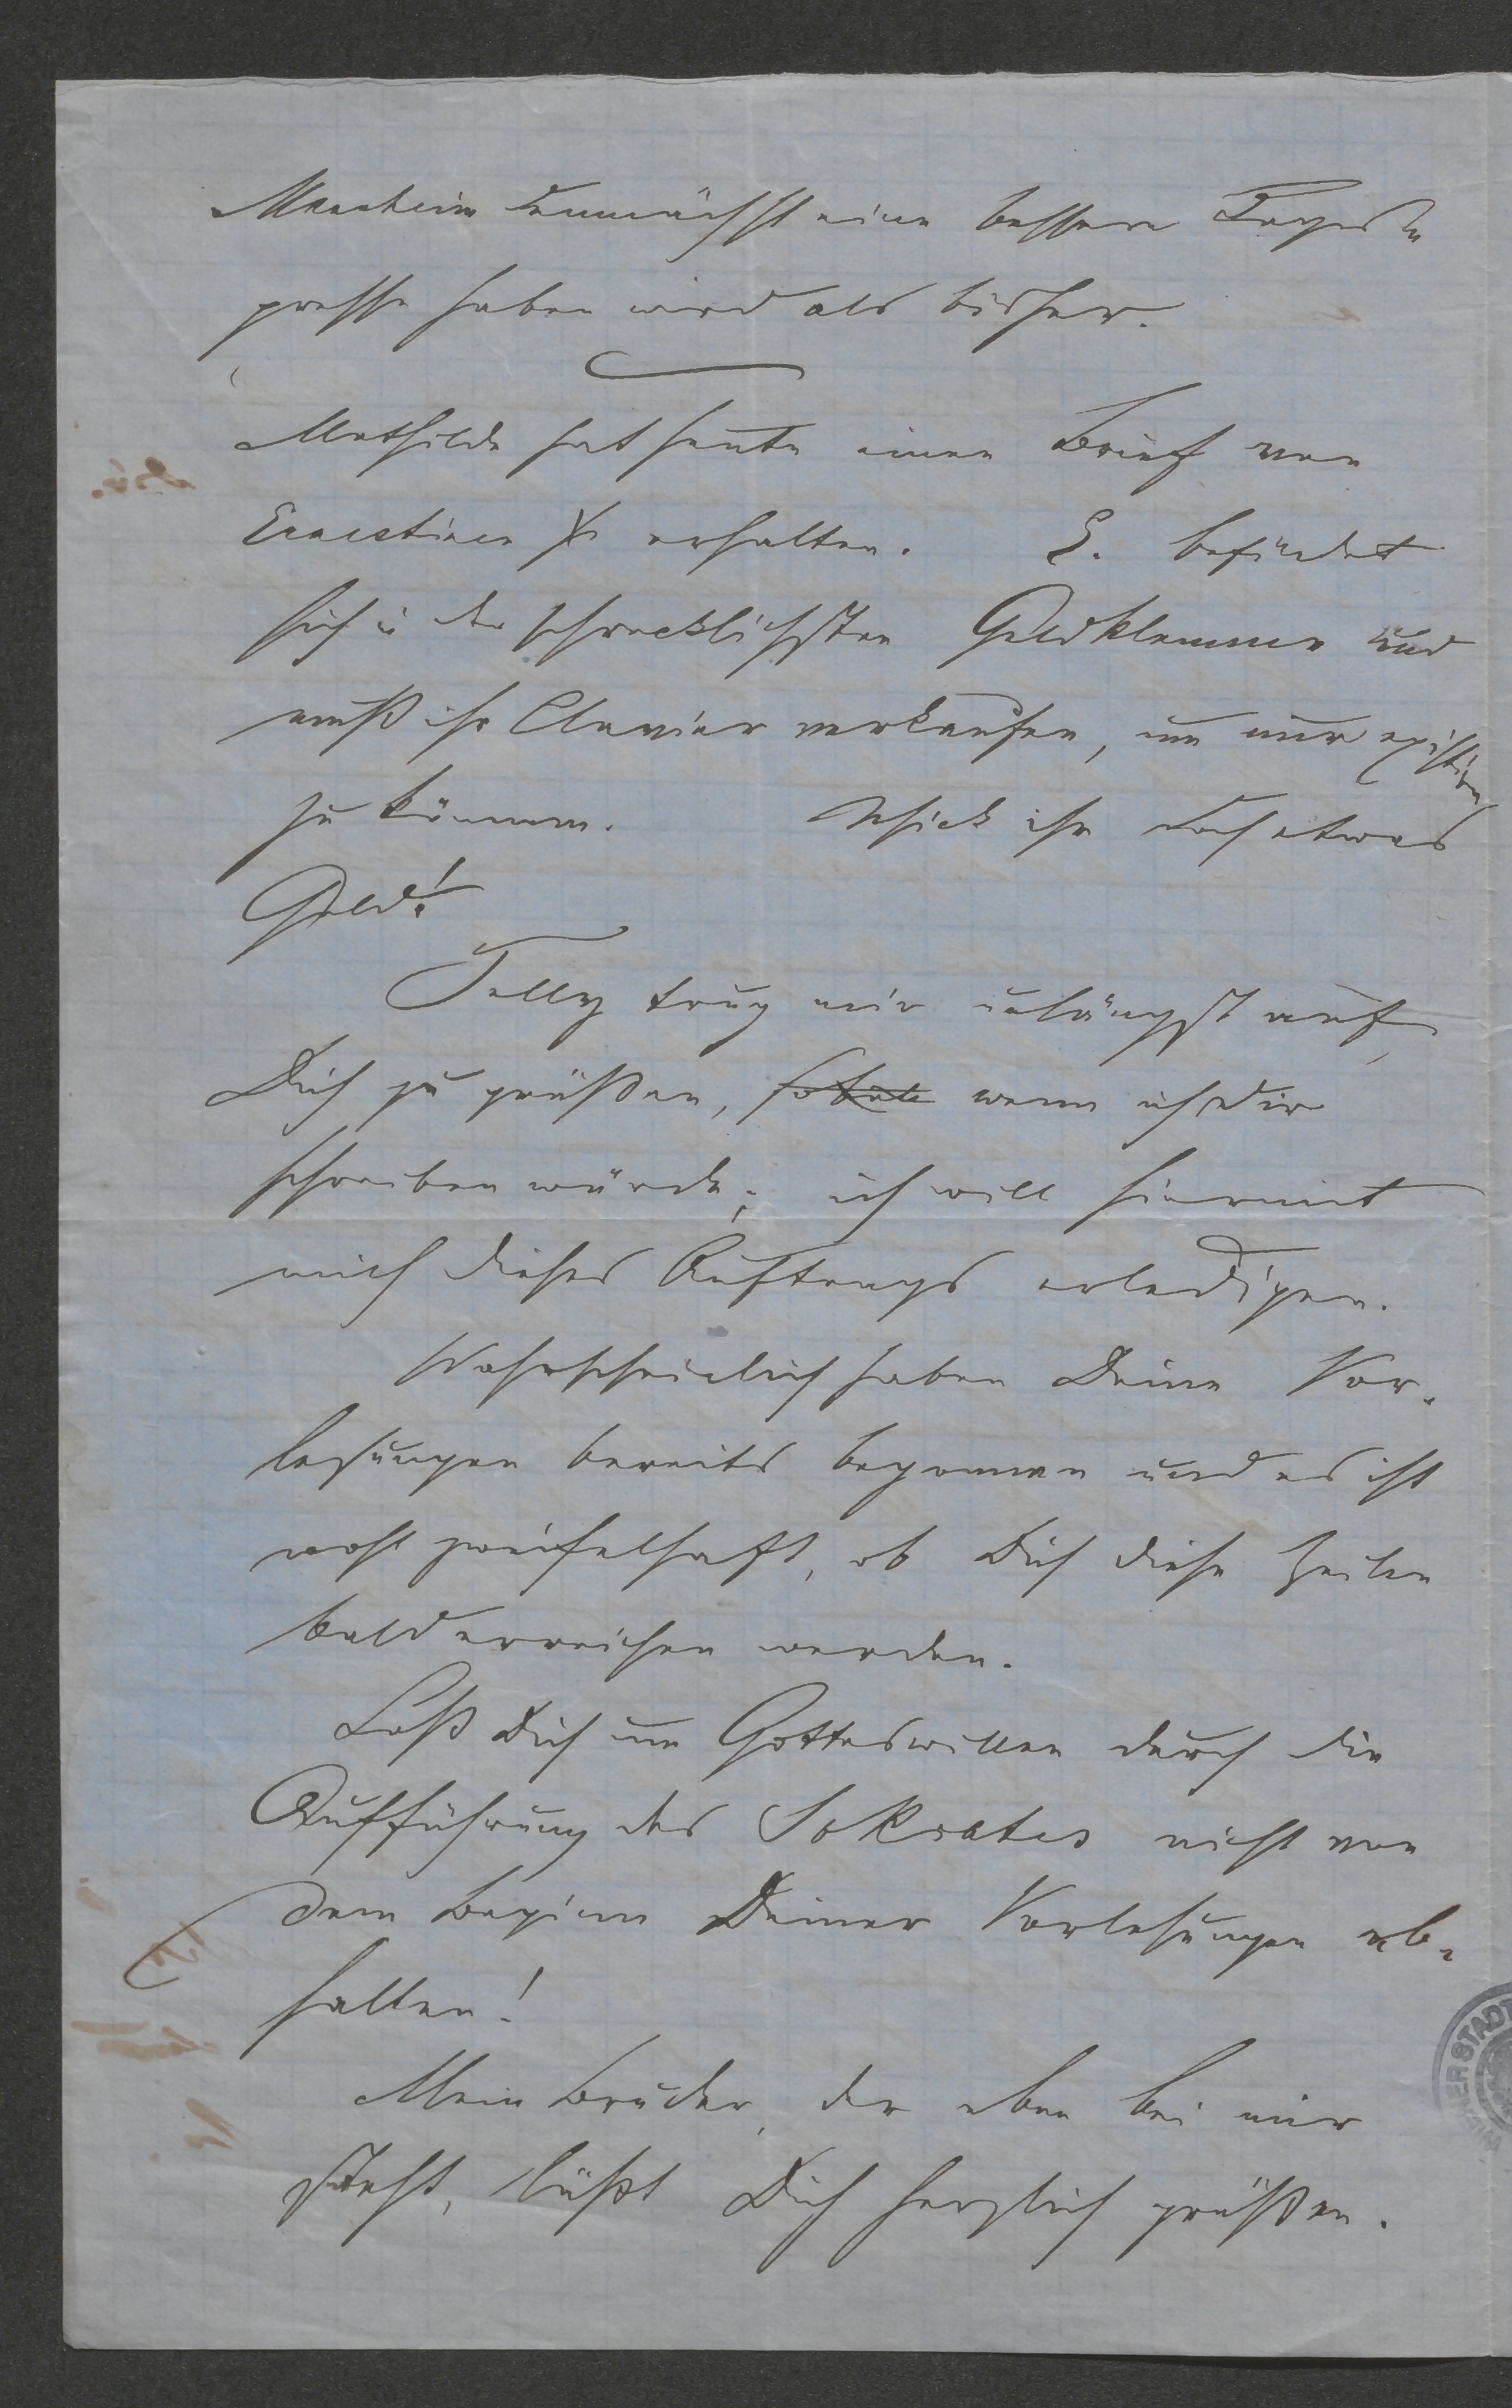 Mannheim demnächst eine bessere Tages-
presse haben wird als bisher.
Mathilde hat heute einen Brief von
Ernestinen erhalten. E. befindet
sich in der schrecklichsten Geldklemme und
muß ihr Clavier verkaufen, um nur existiren
zu können. Schick ihr doch etwas
Geld!
Telly trug mir unlängst auf,
Dich zu grüßen, sobald wenn ich Dir
schreiben würde; ich will hiermit
mich dieses Auftrags erledigen.
Wahrscheinlich haben Deine Vor-
lesungen bereits begonnen und es ist
wohl zweifelhaft, ob Dich diese Zeilen
bald erreichen werden.
Laß Dich um Gotteswillen durch die
Aufführung des Sokrates nicht von
dem Beginn Deiner Vorlesungen ab-
halten!
Mein Bruder, der eben bei mir
steht, läßt Dich herzlich grüßen.